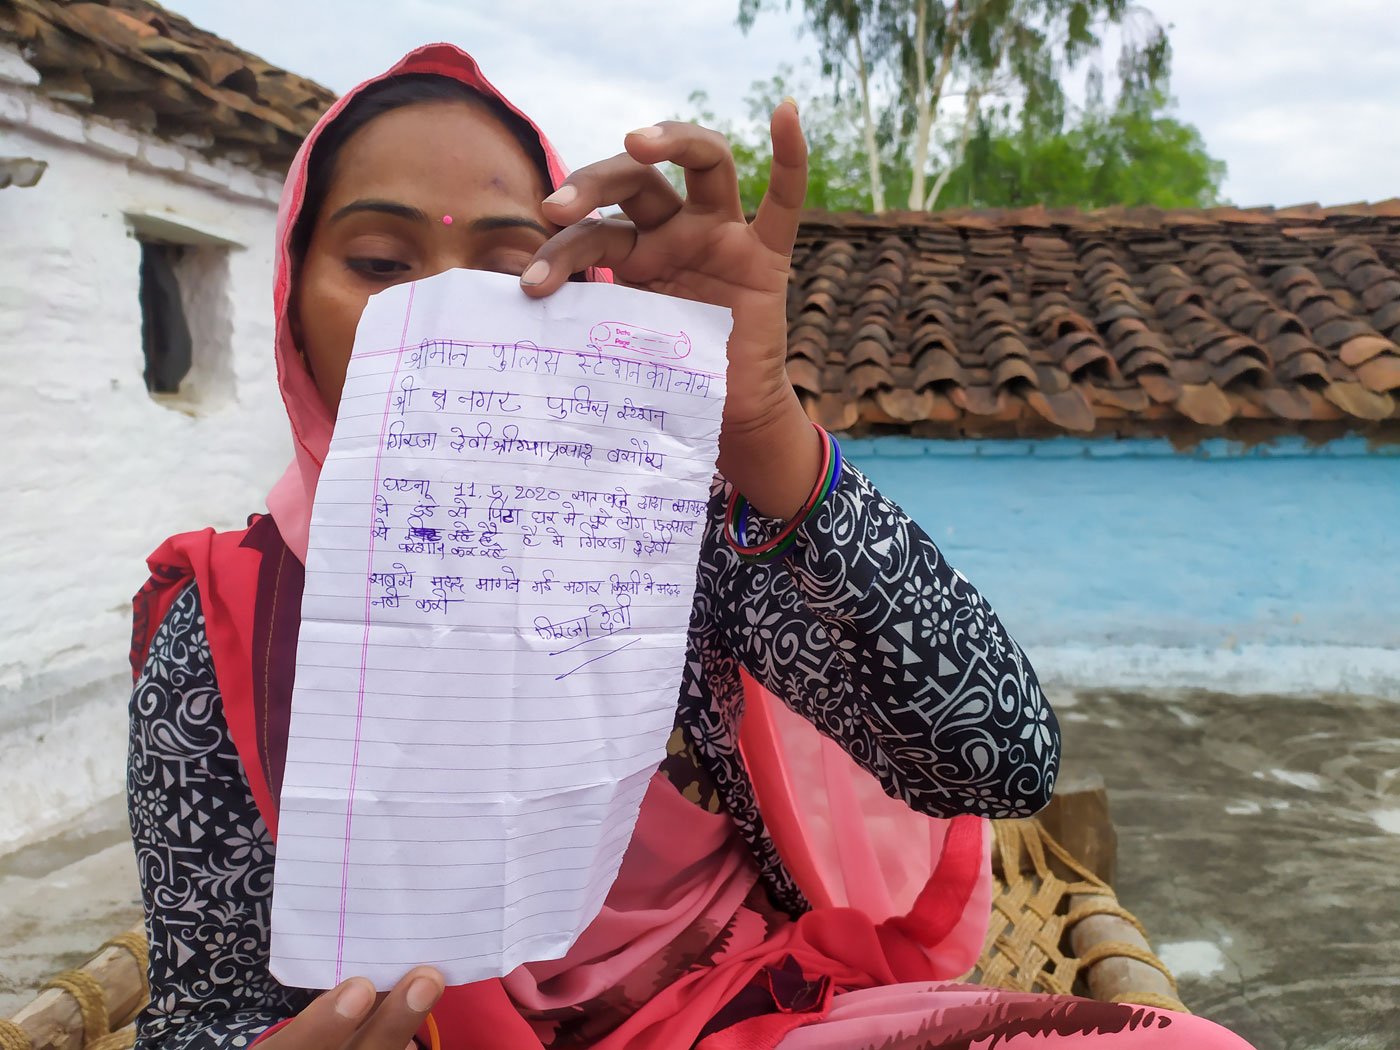 Date
Page
श्रीमान पुलिस स्टेशन का नाम
श्री नगर पुलिस स्टेशन
गिरजा देवी श्री गयाप्रसाद बसोर
घटना 11, 5, 2020 सात बजे
ने डंडे से पिटा घर मे पुरे लोग
से रहे है है मे गिरजा देवी
परेशान कर रहे
सबसे मदद मागने गई मगर किसी ने मदद
नही करी
गिरजा देवी